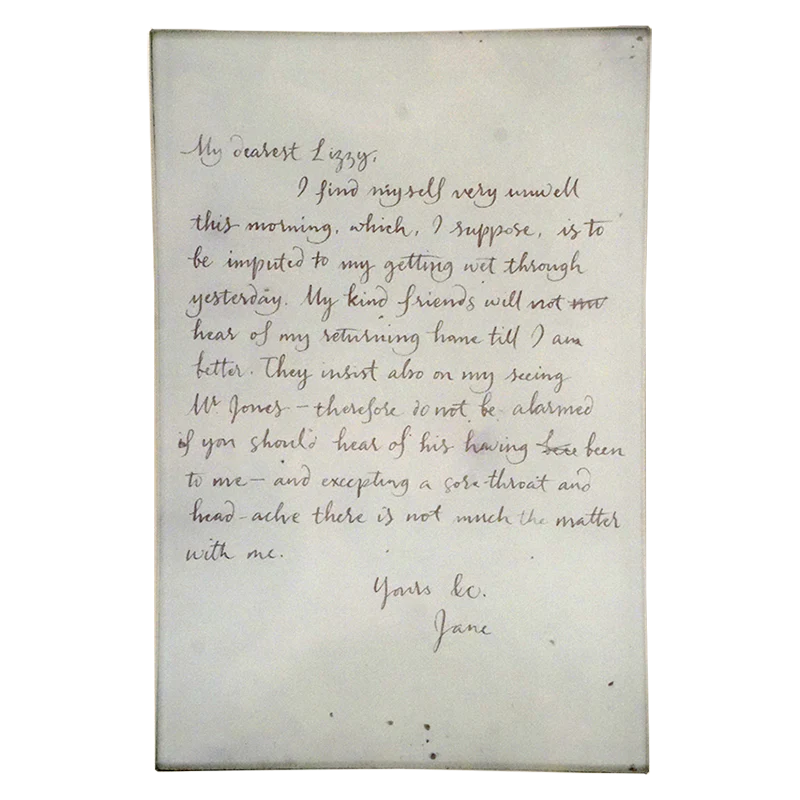 My dearest Lizzy,
I find myself very unwell
this morning, which, I suppose, is to
be imputed to my getting wet through
yesterday. My kind friends will not
hear of my returning home till I am
better. They insist also on my seeing
Mr. Jones – therefore do not be alarmed
if you should hear of his having been
to me – and excepting a sore-throat and
head-ache there is not much the matter
with me.
Yours &c.
Jane